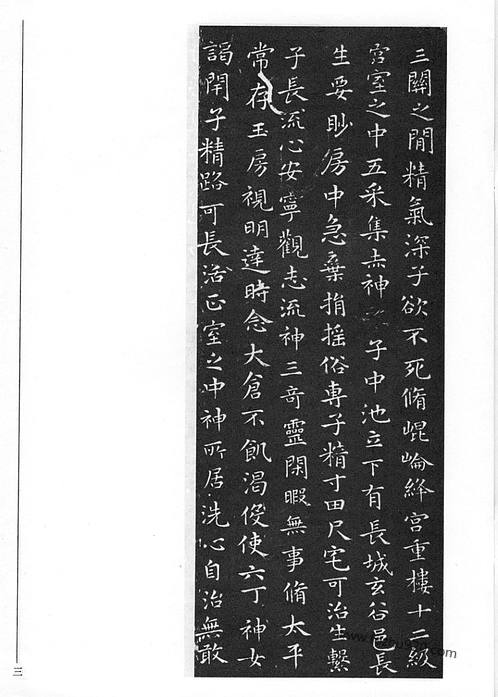 三關之間精氣深子欲不死脩崐崘絳宮重樓十二級
宮室之中五采集赤神子中池立下有長城玄谷邑長
生要眇房中急棄捐搖俗專子精寸田尺宅可治生繫
子長流心安寧觀志流神三奇靈閑暇無事脩太平
常存玉房視明達時念大倉不飢渴役使六丁神女
謁閉子精路可長活正室之中神所居洗心自治無敢
三